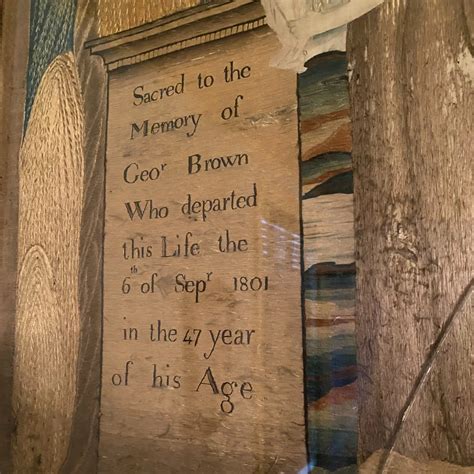 Sacred to the
Memory of
Geoʳ Brown
Who departed
this Life the
6ᵗʰ of Sepʳ 1801
in the 47 year
of his Age